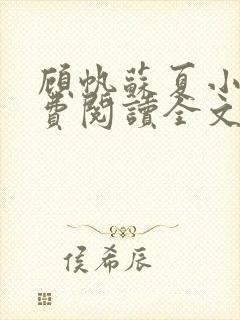 顾帆蘇夏小
費閱讀全文
侯希辰